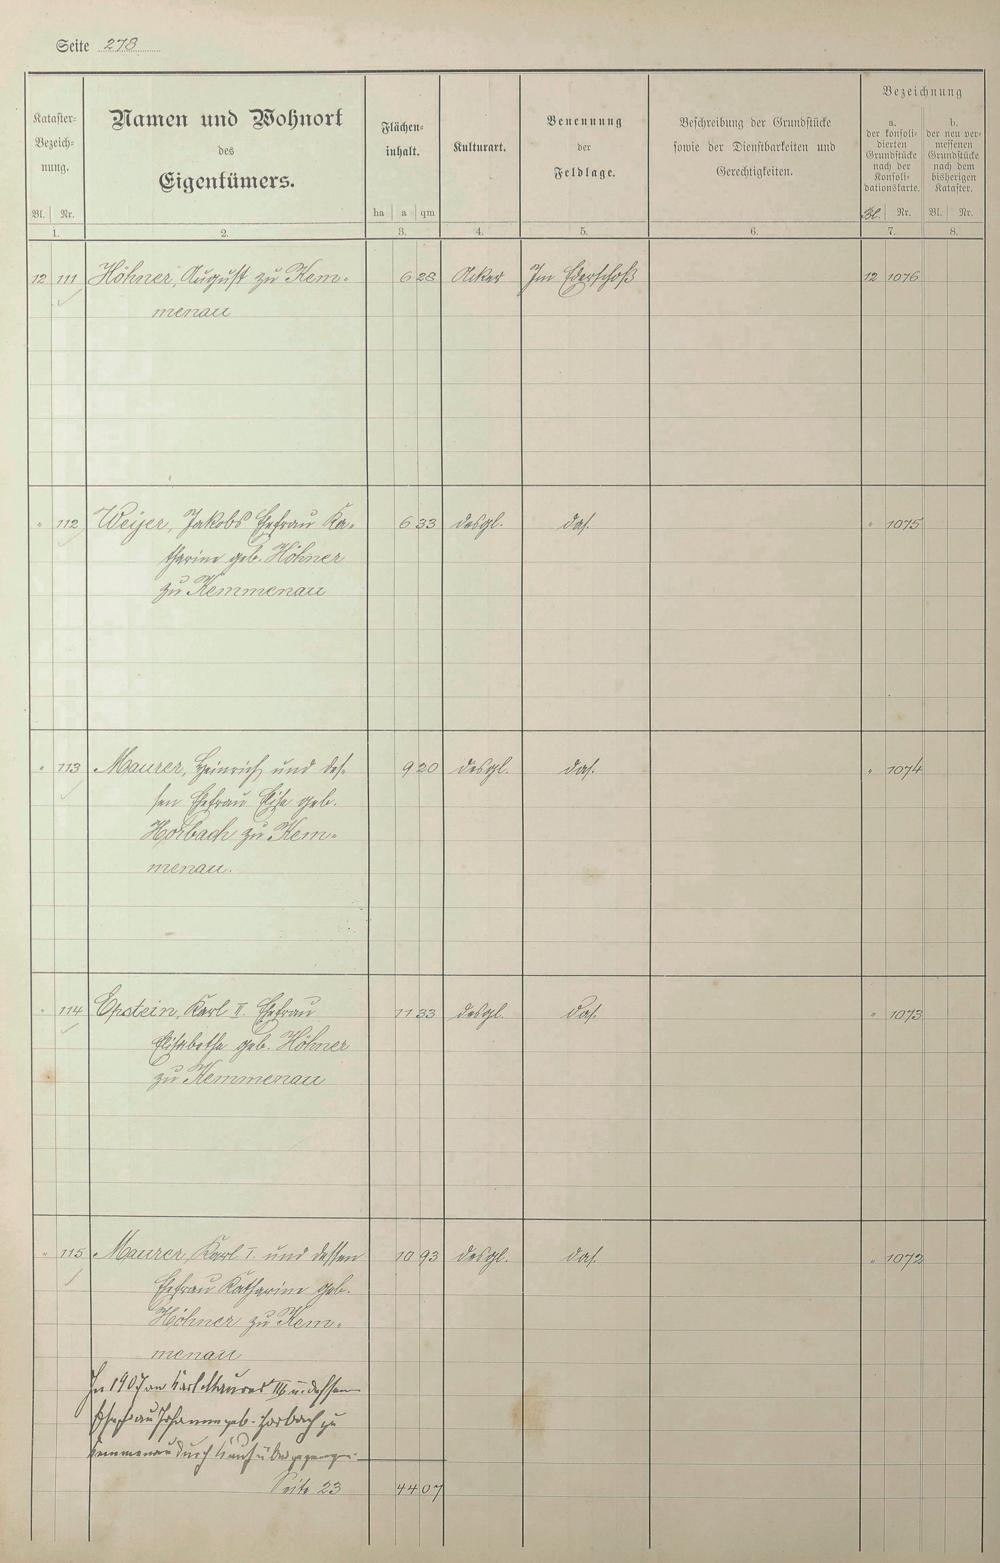 Seite 278
Kataster-Bezeich-nung.
Namen und Wohnort
des
Eigentümers.
Flächen-inhalt.
Kulturart.
Benennung
der
Feldlage.
Beschreibung der Grundstücke
sowie der Dienstbarkeiten und
Gerechtigkeiten.
Bezeichnung
a.
der konsoli-
dierten
Grundstücke
nach der
Konsoli-
dationskarte.
b.
der neu ver-
messenen
Grundstücke
nach dem
bisherigen
Kataster.
Bl. Nr. ha a qm Bl. Nr. Bl. Nr.
1. 2. 3. 4. 5. 6. 7. 8.
12 111 Höhner, August zu Kem- 6 28 Acker Im Ederschoß 12 1076
menau
" 112 Weyer, Jakobs Ehefrau Ka- 6 33 desgl. das. " 1075
tharine geb. Höhner
zu Kemmenau
" 113 Maurer, Heinrich und des- 9 20 desgl. das. " 1074
sen Ehefrau Elise geb.
Horbach zu Kem-
menau.
" 114 Epstein, Karl II. Ehefrau 11 33 desgl. das. " 1073
Elisabetha geb. Höhner
zu Kemmenau
" 115 Maurer, Karl I. und dessen 10 93 desgl. das. " 1072
Ehefrau Katharine geb.
Höhner zu Kem-
menau
In 1907 an Karl Maurer III u. dessen
Ehefrau Johanna geb. Horbach zu
Kemmenau durch Kauf übergegangen.
Seite 23 44 07